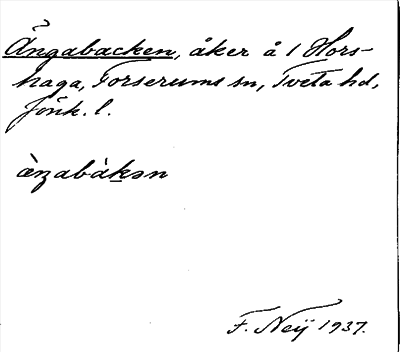 Ängabacken, åker å 1 Hors-
haga, Forserums sn, Tveta hd,
Jönk. l.
F. Neij 1937.